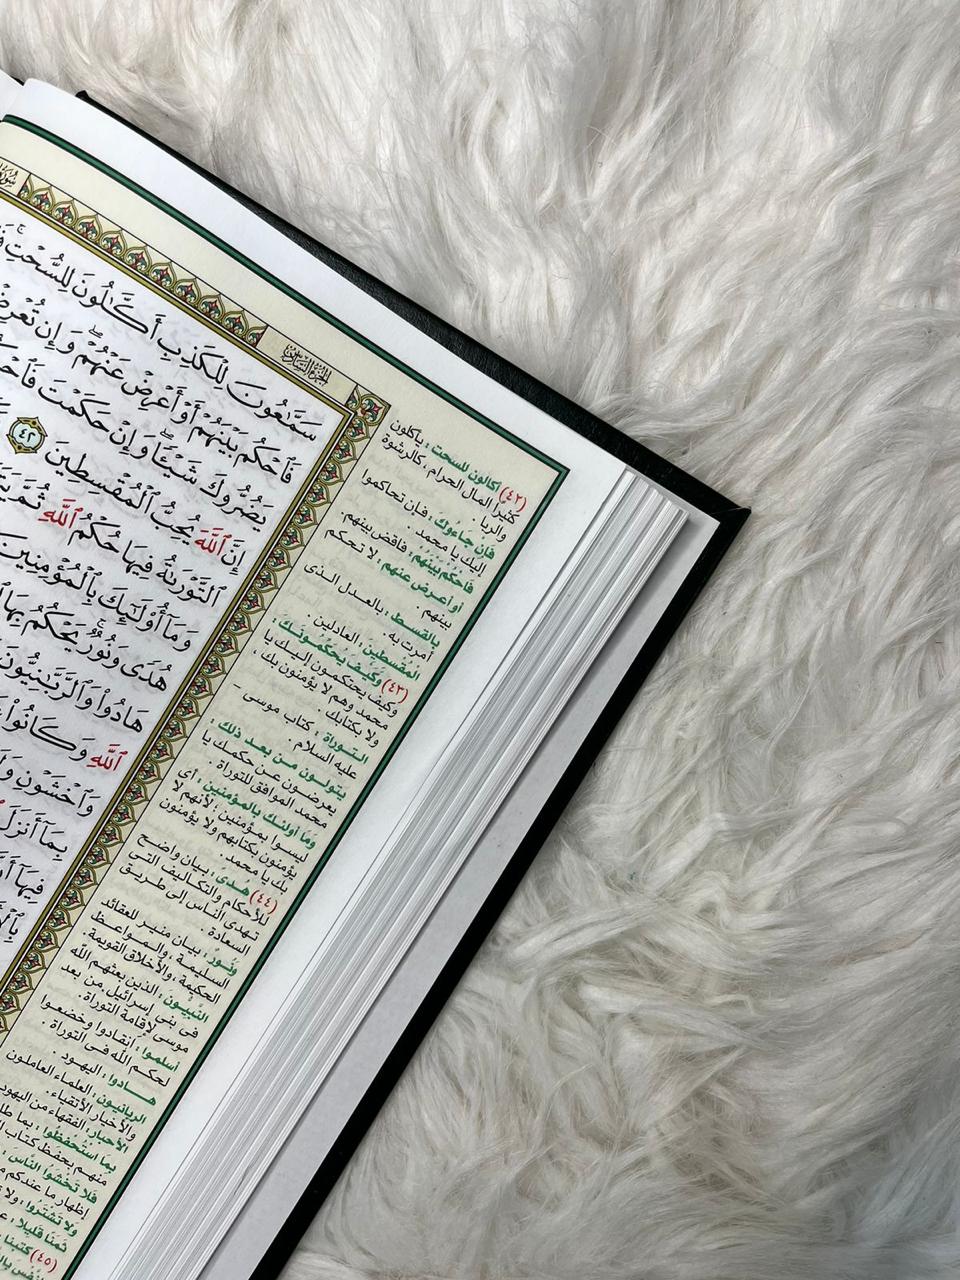 سورة
الجزء السادس
سَمَّٰعُونَ لِلْكَذِبِ أَكَّٰلُونَ لِلسُّحْتِ
فَٱحْكُم بَيْنَهُمْ أَوْ أَعْرِضْ عَنْهُمْ وَإِن تُعْرِضْ
يَضُرُّوكَ شَيْـًٔا وَإِنْ حَكَمْتَ فَٱحْكُم
إِنَّ ٱللَّهَ يُحِبُّ ٱلْمُقْسِطِينَ ٤٢
ٱلتَّوْرَىٰةُ فِيهَا حُكْمُ ٱللَّهِ ثُمَّ
وَمَآ أُو۟لَٰٓئِكَ بِٱلْمُؤْمِنِينَ
هُدًى وَنُورٌ يَحْكُمُ بِهَا
هَادُوا۟ وَٱلرَّبَّٰنِيُّونَ
ٱللَّهِ وَكَانُوا۟
وَٱخْشَوْنِ
بِمَآ أَنزَلَ
فِيهَآ
(٤٢) أكالون للسحت: يأكلون
كثيرًا المال الحرام، كالرشوة
والربا.
فإن جاءوك: فإن تحاكموا
إليك يا محمد.
فاحكم بينهم: فاقض بينهم.
أو أعرض عنهم: لا تحكم
بينهم.
بالقسط: بالعدل الذى
أمرت به.
المُقسطين: العادلين.
(٤٣) وكيف يحكمونك:
وكيف يحتكمون إليك يا
محمد وهم لا يؤمنون بك،
ولا بكتابك.
التوراة: كتاب موسى -
عليه السلام.
يتولون من بعد ذلك:
يعرضون عن حكمك يا
محمد الموافق للتوراة.
وما أولئك بالمؤمنين: أى
ليسوا بمؤمنين؛ لأنهم لا
يؤمنون بكتابهم ولا يؤمنون
بك يا محمد.
(٤٤) هدى: بيان واضح
للأحكام والتكاليف التى
تهدى الناس إلى طريق
السعادة.
ونور: بيان منير للعقائد
السليمة، والمواعظ
الحكيمة، والأخلاق القويمة.
النبيون: الذين بعثهم الله
فى بنى إسرائيل من بعد
موسى لإقامة التوراة.
أسلموا: انقادوا وخضعوا
لحكم الله فى التوراة.
هادوا: اليهود.
الربانيون: العلماء العاملون
والأخيار الأتقياء.
الأحبار: الفقهاء من اليهود
بما استحفظوا: بما
منهم بحفظ كتاب
فلا تخشوا الناس:
إظهار ما عندكم
ولا تشتروا: ولا
ثمنًا قليلا:
(٤٥) كتبنا